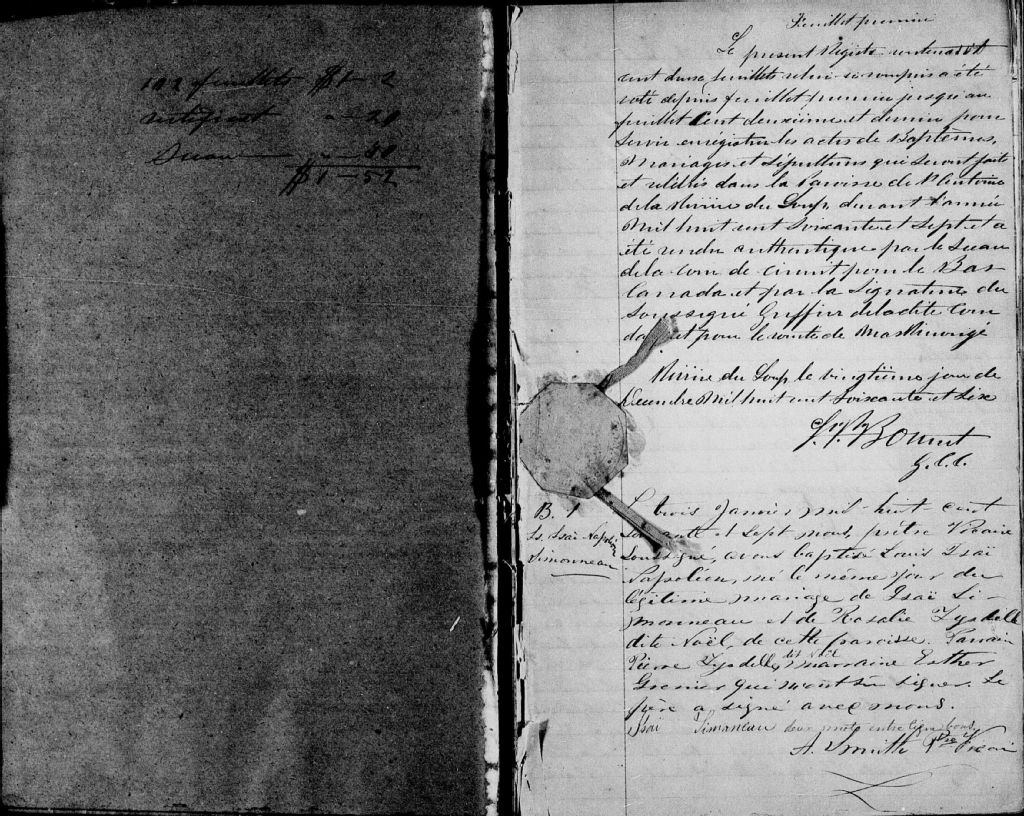 102 feuillets $1-2
certificat " 20
Sceau " 50
$1-52
Feuillet premier
Le present Régistre contenant
cent deux feuillets celui-ci compris a été
coté depuis feuillet premier jusqu'au
feuillet Cent deuxième et dernier pour
servir enrégistrer les actes de Baptêmes,
Mariages et Sépultures qui seront faits
et célébrés dans la Paroisse de St Antoine
de la Rivière du Loup durant l'année
Mil huit cent soixante et Sept et a
été rendu authentique par le Sceau
de la Cour de Circuit pour le Bas
Canada et par la Signature du
Soussigné Greffier de la dite Cour
dans et pour le comté de Maskinongé
Rivière du Loup le vingtième jour de
Décembre Mil huit cent soixante et Six
G. C. C.
B. 1
Ls. Isaï Napoléon
Simonneau
Le trois Janvier mil-huit-cent
soixante et sept nous, prêtre Vicaire
soussigné, avons baptisé Louis Isaï
Napoléon, né le même jour du
légitime mariage de Isaï Si-
monneau et de Rosalie Tysdelle
dite Noël, de cette paroisse. Parrain
Pierre Tysdelle, dit Noël marraine Esther
Grenier qui n'ont su signer. Le
père a signé avec nous.
Isaï Simoneau deux mots entre ligne bons
A. Smith Ptre Vicaire